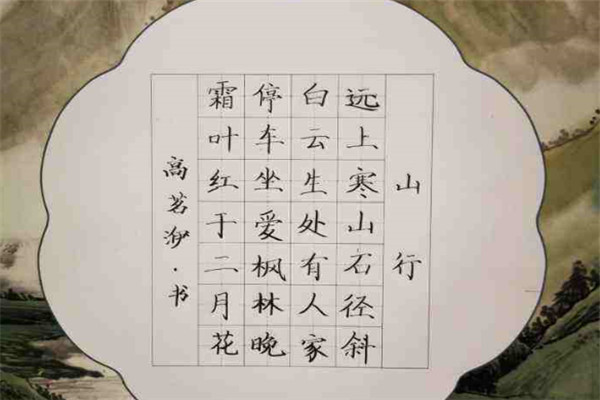 山行
远上寒山石径斜
白云生处有人家
停车坐爱枫林晚
霜叶红于二月花
高茗洢·书